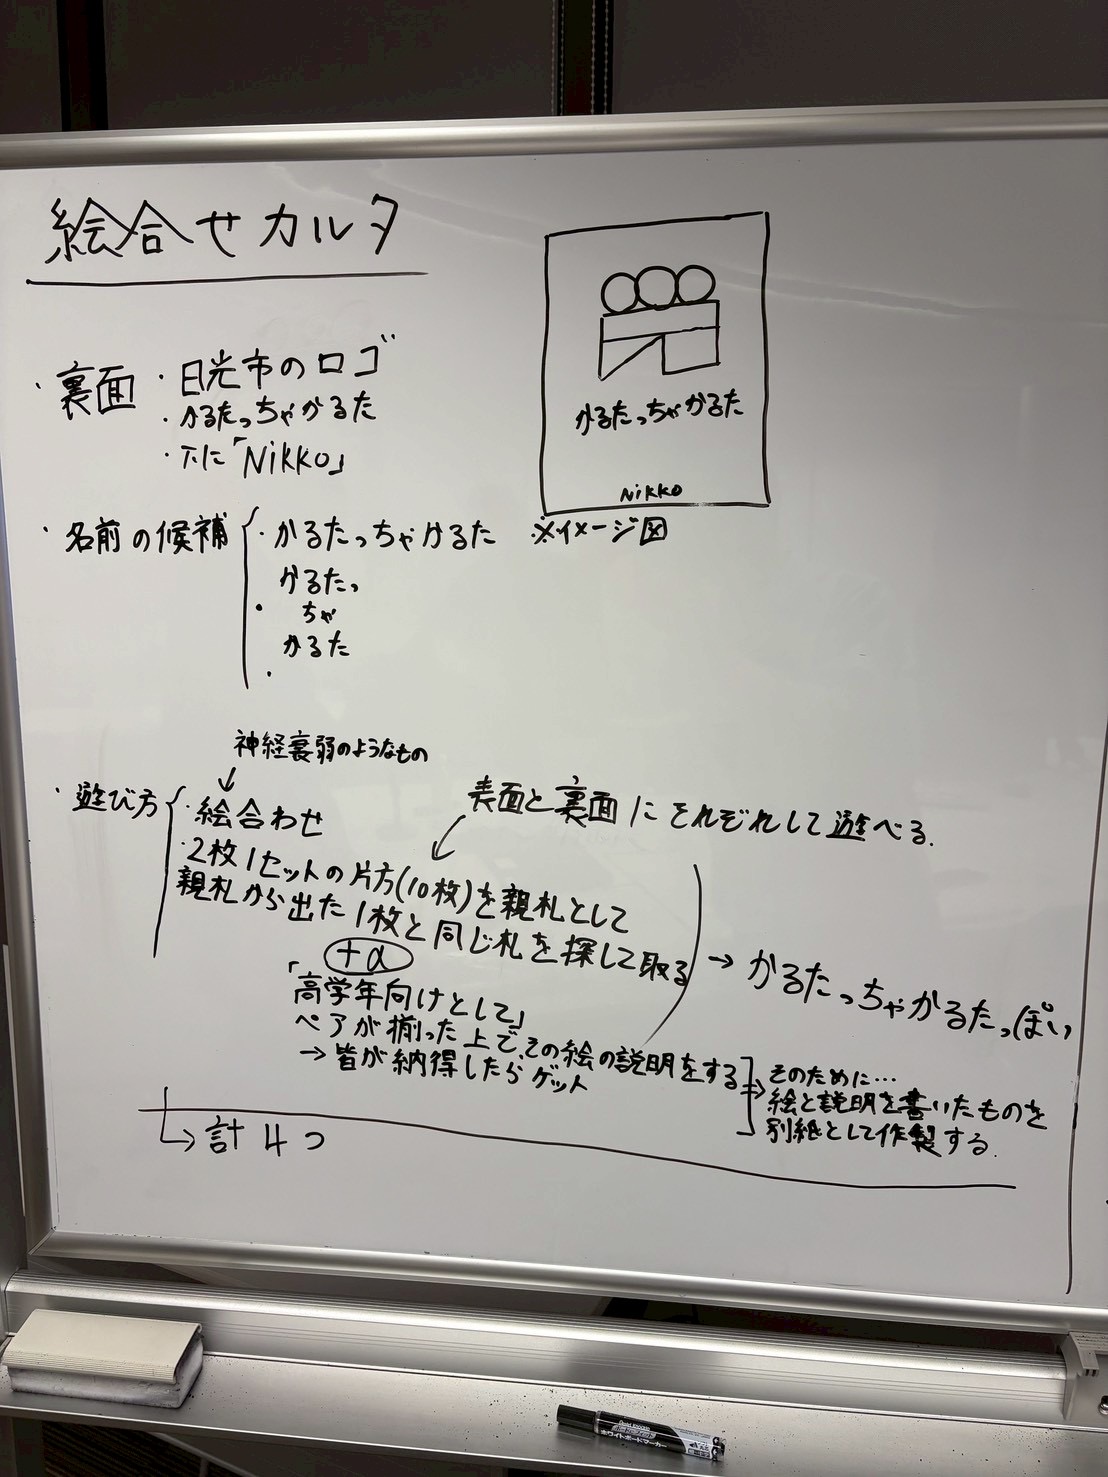 絵合せカルタ
・裏面 ・日光市のロゴ
・かるたっちゃかるた
・下に「Nikko」
かるたっちゃかるた
Nikko
※イメージ図
・名前の候補
・かるたっちゃかるた
・かるたっ
ちゃ
かるた
・
神経衰弱のようなもの
↓
・遊び方
・絵合わせ
表面と裏面にそれぞれして遊べる.
・2枚1セットの片方(10枚)を親札として
親札から出た1枚と同じ札を探して取る
→かるたっちゃかるたっぽい
+α
「高学年向けとして」
ペアが揃った上で、その絵の説明をする
→皆が納得したらゲット
そのために…
絵と説明を書いたものを
別紙として作製する.
→計4つ